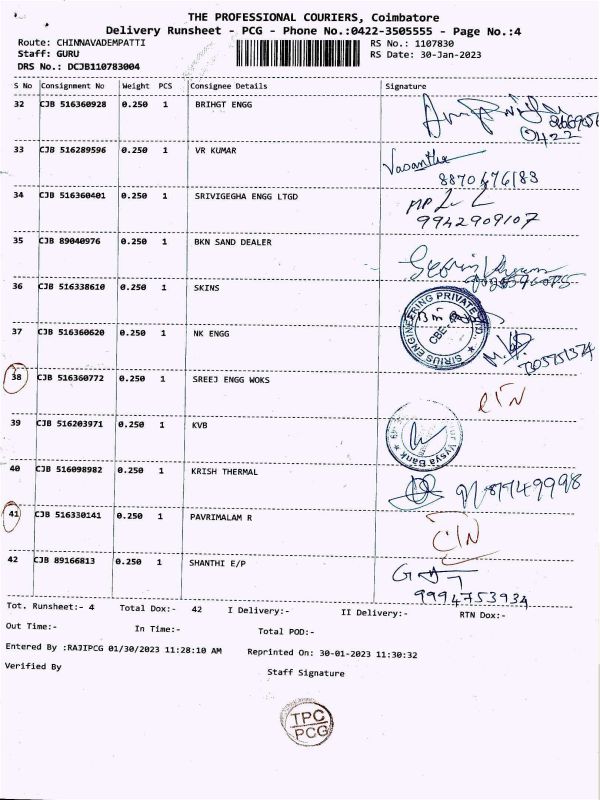 THE PROFESSIONAL COURIERS, Coimbatore
Delivery Runsheet - PCG - Phone No.:0422-3505555 - Page No.:4
Route: CHINNAVADEMPATTI RS No.: 1107830
Staff: GURU RS Date: 30-Jan-2023
DRS No.: DCJB110783004
S No Consignment No Weight PCS Consignee Details Signature
32 CJB 516360928 0.250 1 BRIHGT ENGG
0422
33 CJB 516289596 0.250 1 VR KUMAR Vasantha
8870676183
34 CJB 516360401 0.250 1 SRIVIGEGHA ENGG LTGD
9942909107
35 CJB 89040976 0.250 1 BKN SAND DEALER
36 CJB 516338610 0.250 1 SKINS
SIRIUS ENGINEERING PRIVATE LTD.
CBE
37 CJB 516360620 0.250 1 NK ENGG
38 CJB 516360772 0.250 1 SREEJ ENGG WOKS
39 CJB 516203971 0.250 1 KVB
Vysya Bank
40 CJB 516098982 0.250 1 KRISH THERMAL
41 CJB 516330141 0.250 1 PAVRIMALAM R
42 CJB 89166813 0.250 1 SHANTHI E/P
9994753934
Tot. Runsheet:- 4 Total Dox:- 42 I Delivery:- II Delivery:- RTN Dox:-
Out Time:- In Time:- Total POD:-
Entered By :RAJIPCG 01/30/2023 11:28:10 AM Reprinted On: 30-01-2023 11:30:32
Verified By Staff Signature
TPC
PCG